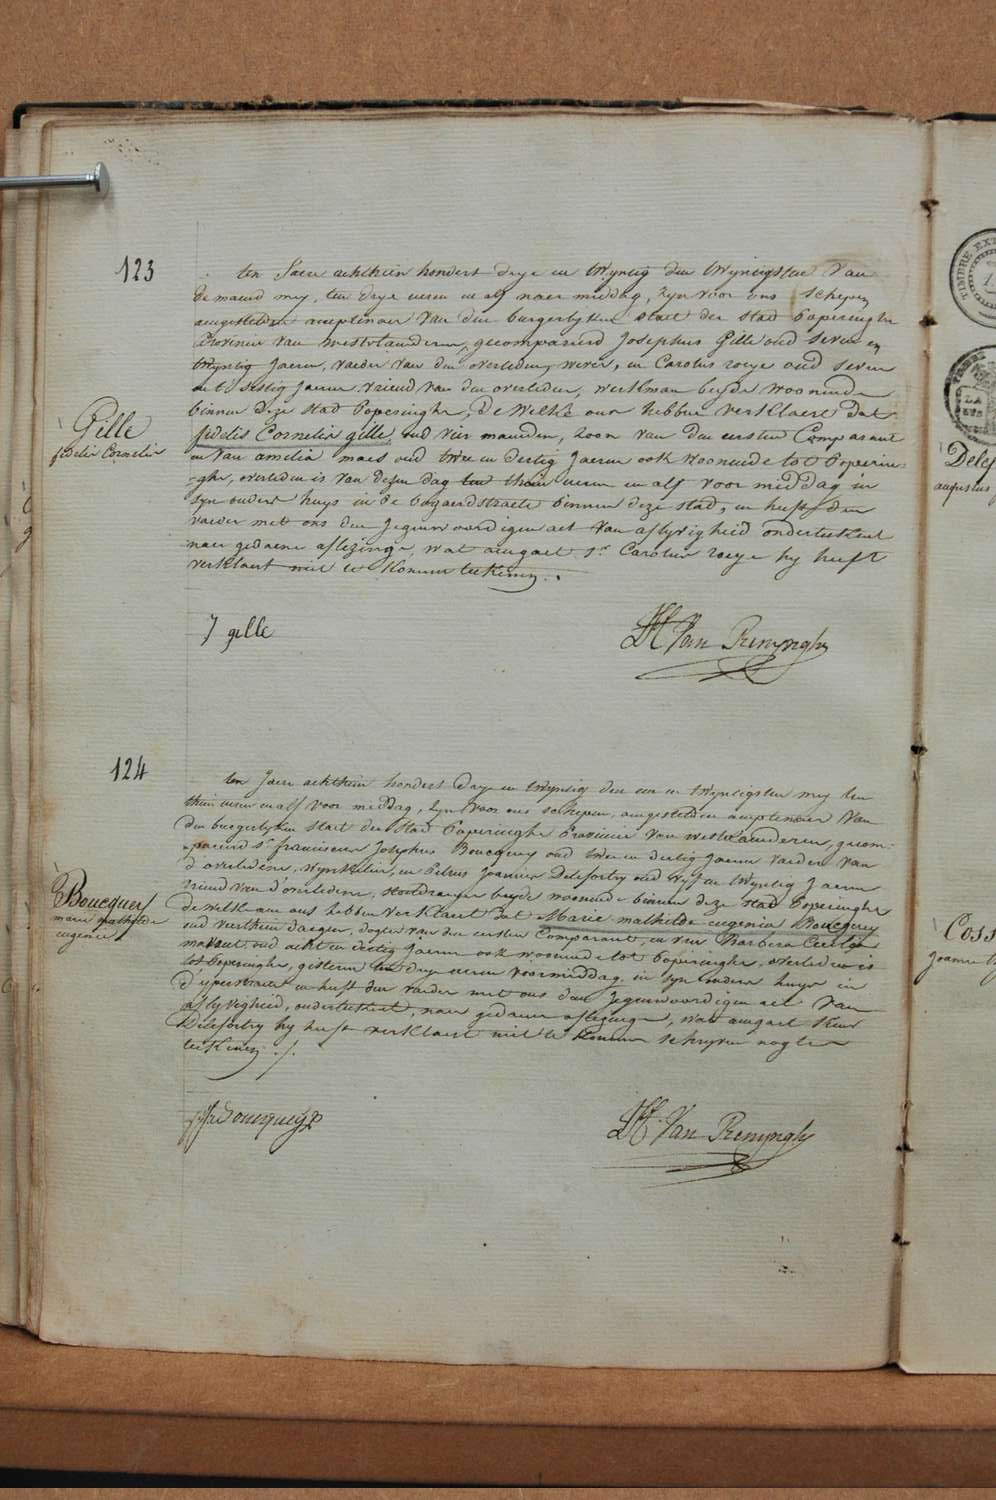 123
Gille
fidelis Cornelis
ten Jaere achthien hondert drye en twyntig den twyntigsten van
de maend mey, ten drye uren en alf naer middag, zyn voor ons schepen
aengestelden amptenaer van den burgerlyken staet der stad Poperinghe
Provincie van westvlaenderen, gecompareerd Josephus Gille oud seven en
twyntig Jaeren, vaeder van den overleden, wever, en Carolus roeye oud seven
en t'sestig Jaeren vriend van den overleden, werkman beyde woonende
binnen deze stad Poperinghe, de Welke ons hebben verklaert dat
fidelis Cornelis gille, oud vier maenden, zoon van den eersten Comparant
en van amelia maes oud twee en dertig Jaeren ook woonende tot Poperin-
-ghe, overleden is van dezen dag ten thien uren en alf voor middag in
syn ouders huys in de bogaerdstraete binnen deze stad, en heeft den
vaeder met ons den Jegenwoordigen act van aflyvigheid onderteekent
naer gedaene aflezinge, wat aengaet sr Carolus roeye hy heeft
verklaert niet te konnen teekenen.
J gille
Vn Renynghe
124
Boucquey
marie mathilde
eugenie
ten Jaere achthien hondert drye en twyntig den een en twyntigsten mey ten
thien uren en alf voor middag, zyn voor ons schepen, aengestelden amptenaer van
den burgerlyken staet der stad Poperinghe Provincie van westvlaenderen, gecom-
-pareerd sr franciscus Josephus Boucquey oud twee en dertig Jaeren vaeder van
d'overledene, wynkelier, en Petrus Joannes Delefortry oud vyf en twyntig Jaeren
vriend van d'overledene, beyde woonende binnen deze stad Poperinghe
de welke aen ons hebben verklaert dat Marie mathilde eugenia Boucquey
oud verthien daegen, dogter van den eersten Comparant, en van Barbara Cecilia
oud acht en dertig Jaeren ook woonende tot Poperinghe, overleden is
tot Poperinghe, gisteren ten drye uren voormiddag in syn ouders huys in
d'yperstraete en heeft den vaeder met ons den Jegenwoordigen act van
aflyvigheid, onderteekent, naer gedaene aflezinge, wat aengaet
Delefortry hy heeft verklaert niet te konnen schryven nogte
teekenen
Boucquey
Van Renynghe
TIMBRE
Delef
augustus
Coss
Joanne